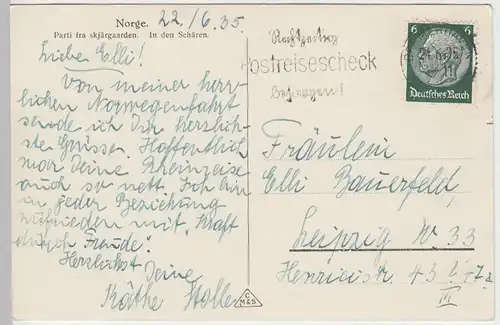 Norge.
22./6.35.
Parti fra skjärgaarden. In den Schären.
Liebe Elli!
Von meiner herr-
lichen Norwegenfahrt
sende ich Dir herzlich-
ste Grüsse. Hoffentlich
war Deine Rheinreise
auch so nett. Ich bin
in jeder Beziehung
zufrieden mit "Kraft
durch Freude!"
Herzlichst
Deine
Käthe
C
M&S
Rechtzeitig
Postreisescheck
besorgen!
6 6
Deutsches Reich
Fräulein
Elli Bauerfeld,
Leipzig W. 33
Henricistr. 43
III